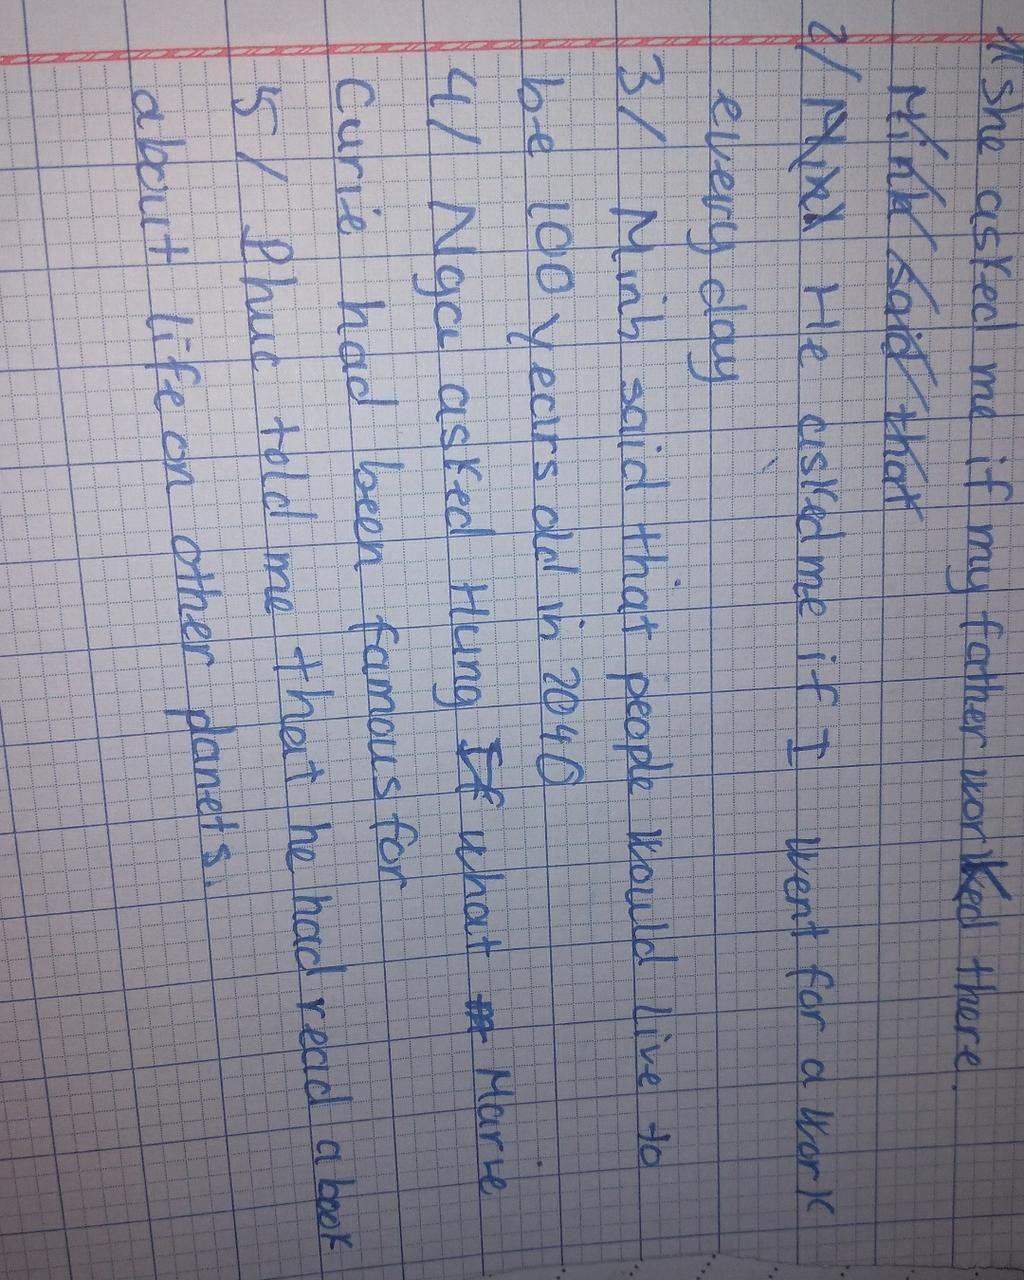 1/ She asked me if my father worked there.
Minh said that
2/ He asked me if I went for a work
every day
3/ Minh said that people would live to
be 100 years old in 2040
4/ Nga asked Hung If what Marie
Curie had been famous for
5/ Phuc told me that he had read a book
about life on other planets.